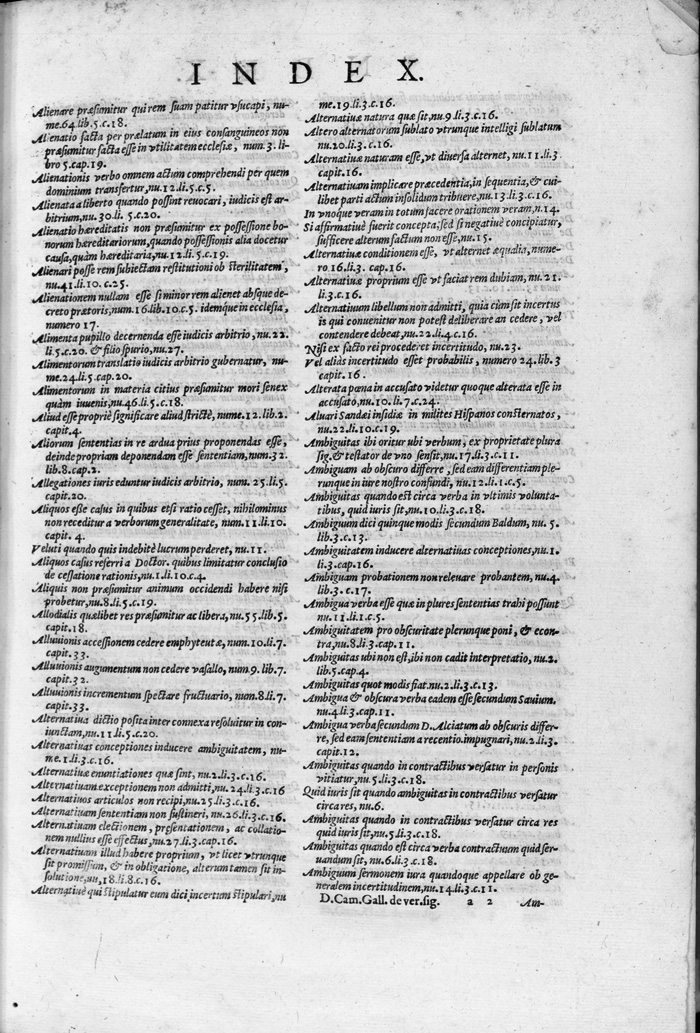 INDEX.
Alienare præsumitur qui rem suam patitur vsucapi, nu-
me.64.lib.5.c.18.
Alienatio facta per prælatum in eius consanguineos non
præsumitur facta esse in vtilitatem ecclesiæ, num.3.li-
bro 5.cap.19.
Alienationis verbo omnem actum comprehendi per quem
dominium transfertur,nu.12.li.5.c.5.
Alienata a liberto quando possint reuocari, iudicis est ar-
bitrium,nu.30.li.5.c.20.
Alienatio hæreditatis non præsumitur ex possessione bo-
norum hæreditariorum,quando possessionis alia docetur
causa,quàm hæreditaria,nu.12.li.5.c.19.
Alienari posse rem subiectam restitutioni ob sterilitatem,
nu.41.li.10.c.25.
Alienationem nullam esse si minor rem alienet absque de-
creto prætoris,num.16.lib.10.c.5. idemque in ecclesia,
numero 17.
Alimenta pupillo decernenda esse iudicis arbitrio, nu.22.
li.5.c.20. & filio spurio,nu.27.
Alimentorum translatio iudicis arbitrio gubernatur, nu-
me.24.li.5.cap.20.
Alimentorum in materia citius præsumitur mori senex
quàm iuuenis,nu.46.li.5.c.18.
Aliud esse propriè significare aliud strictè, nume.12.lib.2.
capit.4.
Aliorum sententias in re ardua prius proponendas esse,
deinde propriam deponendam esse sententiam,num.32.
lib.8.cap.2.
Allegationes iuris eduntur iudicis arbitrio, num.25.li.5.
capit.20.
Aliquos esse casus in quibus etsi ratio cesset, nihilominus
non receditur a verborum generalitate, num.11.li.10.
capit. 4.
Veluti quando quis indebitè lucrum perderet, nu.11.
Aliquos casus referri a Doctor. quibus limitatur conclusio
de cessatione rationis,nu.1.li.10.c.4.
Aliquis non præsumitur animum occidendi habere nisi
probetur,nu.8.li.5.c.19.
Allodialis quælibet res præsumitur ac libera,nu.55.lib.5.
capit.18.
Alluuionis accessionem cedere emphyteutæ, num.10.li.7.
capit.33.
Alluuionis augumentum non cedere vasallo, num.9.lib.7.
capit.32.
Alluuionis incrementum spectare fructuario, num.8.li.7.
capit.33.
Alternatiua dictio posita inter connexa resoluitur in con-
iunctam,nu.11.li.5.c.20.
Alternatiuas conceptiones inducere ambiguitatem, nu-
me.1.li.3.c.16.
Alternatiuæ enuntiationes quæ sint, nu.2.li.3.c.16.
Alternatiuam exceptionem non admitti,nu.24.li.3.c.16
Alternatiuos articulos non recipi,nu.25.li.3.c.16.
Alternatiuam sententiam non sustineri, nu.26.li.3.c.16.
Alternatiuam electionem, presentationem, ac collatio-
nem nullius esse effectus,nu.27.li.3.cap.16.
Alternatiuam illud habere proprium, vt licet vtrunque
sit promissum, & in obligatione, alterum tamen sit in
solutione,nu,18.li.8.c.16.
Alternatiuè qui stipulatur eum dici incertum stipulari,nu
me.19.li.3.c.16.
Alternatiuæ natura quæ sit,nu.9.li.3.c.16.
Altero alternatorum sublato vtrunque intelligi sublatum
nu.20.li.3.c.16.
Alternatiuæ naturam esse, vt diuersa alternet, nu.11.li.3
capit.16.
Alternatiuam implicare præcedentia, in sequentia, & cui-
libet parti actum insolidum tribuere,nu.13.li.3.c.16.
In vnoque veram in totum facere orationem veram,n.14.
Si affirmatiuè fuerit concepta,sed si negatiuè concipiatur,
sufficere alterum factum non esse,nu.15.
Alternatiuæ conditionem esse, vt alternet æqualia, nume-
ro 16.li.3. cap.16.
Alternatiuæ proprium esse vt faciat rem dubiam, nu.21.
li.3.c.16.
Alternatiuum libellum non admitti, quia cùm sit incertus
is qui conuenitur non potest deliberare an cedere, vel
contendere debeat,nu.22.li.4.c.16.
Nisi ex facto rei procederet incertitudo, nu.23.
Vel aliàs incertitudo esset probabilis, numero 24.lib.3
capit.16.
Alterata pœna in accusato videtur quoque alterata esse in
accusato,nu.10.li.7.c.24.
Aluari Sandæi insidiæ in milites Hispanos consternatos,
nu.22.li.10.c.19.
Ambiguitas ibi oritur ubi verbum, ex proprietate plura
sig.& testator de vno sensit,nu.17.li.3.c.11.
Ambiguam ab obscuro differre, sed eam differentiam ple-
runque in iure nostro confundi, nu.12.li.1.c.5.
Ambiguitas quando est circa verba in vltimis volunta-
tibus, quid iuris sit,nu.10.li.3.c.18.
Ambiguum dici quinque modis secundum Baldum, nu.5.
lib.3.c.13.
Ambiguitatem inducere alternatiuas conceptiones,nu.1.
li.3.cap.16.
Ambiguam probationem non releuare probantem, nu.4.
lib.3.c.17.
Ambigua verba esse quæ in plures sententias trahi possunt
nu.11.li.1.c.5.
Ambiguitatem pro obscuritate plerunque poni, & econ-
tra,nu.8.li.3.cap.11.
Ambiguitas ubi non est,ibi non cadit interpretatio, nu.2.
lib.5.cap.4.
Ambiguitas quot modis fiat.nu.2.li.3.c.13.
Ambigua & obscura verba eadem esse secundum Sauium.
nu.4.li.3.cap.11.
Ambigua verba secundum D.Alciatum ab obscuris differ-
re, sed eam sententiam a recentio.impugnari, nu.2.li.3.
capit.12.
Ambiguitas quando in contractibus versatur in personis
vitiatur,nu.5.li.3.c.18.
Quid iuris sit quando ambiguitas in contractibus versatur
circa res, nu.6.
Ambiguitas quando in contractibus versatur circa res
quid iuris sit,nu.5.li.3.c.18.
Ambiguitas quando est circa verba contractuum quid ser-
uandum sit,nu.6.li.3.c.18.
Ambiguum sermonem iura quandoque appellare ob ge-
neralem incertitudinem,nu.14.li.3.c.11.
D.Cam.Gall.de ver.sig. a 2 Am-